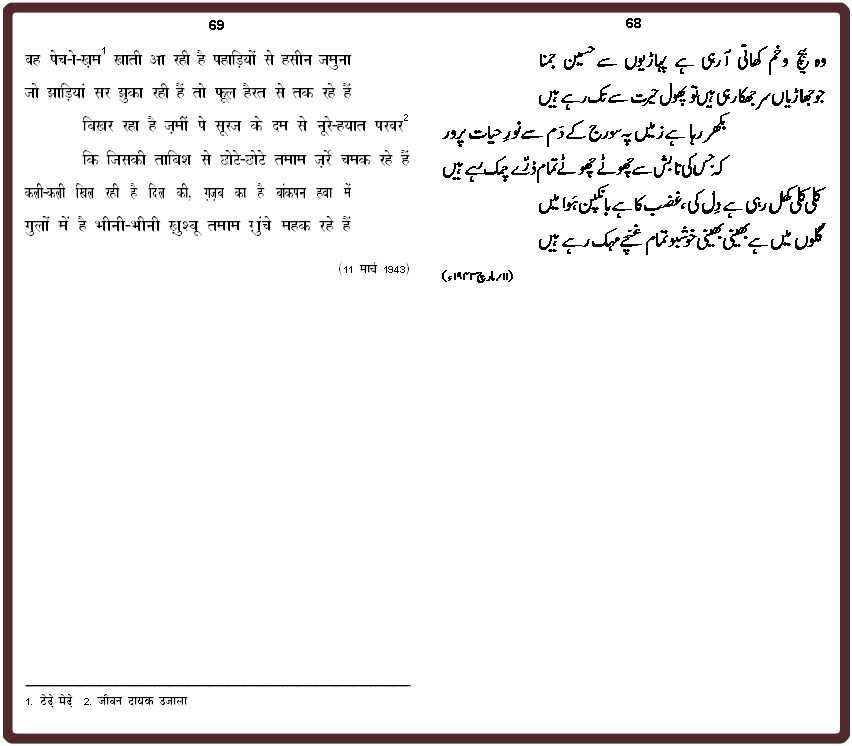 69
वह पेच-ो-ख़म1 खाती आ रही है पहाड़ियों से हसीन जमुना
जो झाड़ियां सर झुका रही हैं तो फूल हैरत से तक रहे हैं
बिखर रहा है ज़मीं पे सूरज के दम से नूरे-हयात परवर2
कि जिसकी ताबिश से छोटे-छोटे तमाम ज़र्रे चमक रहे हैं
कली-कली खिल रही है दिल की, ग़ज़ब का है बांकपन हवा में
गुलों में है भीनी-भीनी ख़ुश्बू तमाम ग़ुंचे महक रहे हैं
(11 मार्च 1943)
1. टेढ़े मेढ़े 2. जीवन दायक उजाला
68
وہ پیچ و خم کھاتی آ رہی ہے پہاڑیوں سے حسین جمنا
جو جھاڑیاں سر جھکا رہی ہیں تو پھول حیرت سے تک رہے ہیں
بکھر رہا ہے زمیں پہ سورج کے دَم سے نورِ حیات پرور
کہ جس کی تابش سے چھوٹے چھوٹے تمام ذرّے چمک رہے ہیں
کلی کلی کھل رہی ہے دِل کی، غضب کا ہے بانکپن ہَوا میں
گلوں میں ہے بھینی بھینی خوشبو تمام غنچے مہک رہے ہیں
(۱۱؍مارچ ۱۹۴۳ء)